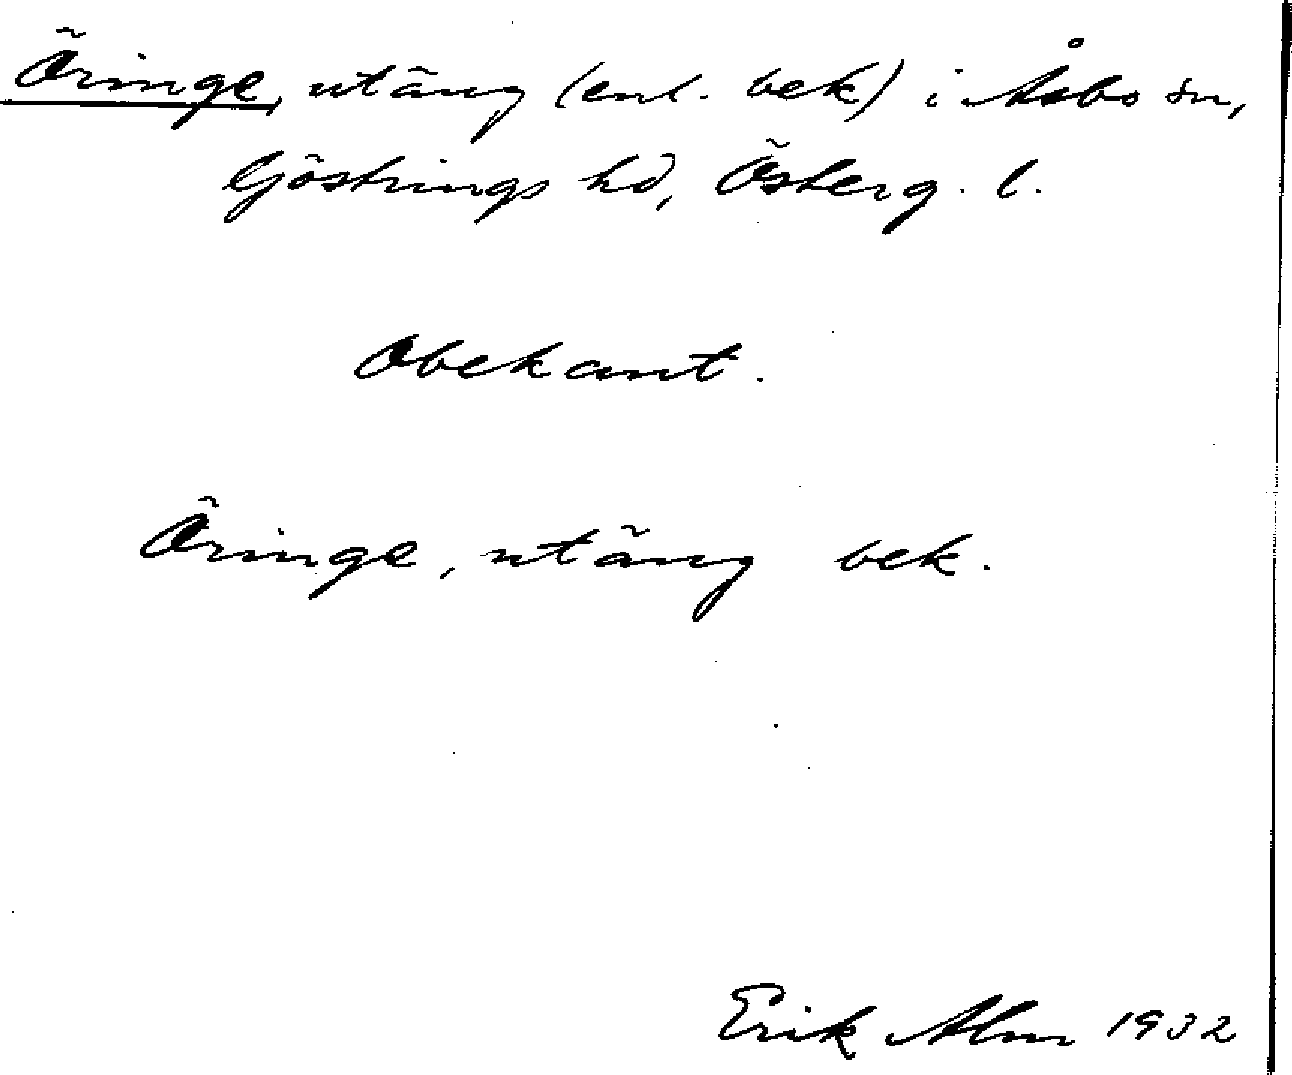 Öringe, utäng (enl. bek) i Åsbo sn,
Göstrings hd, Österg. l.
Obekant.
Öringe, utäng bek.
Erik Alm 1932